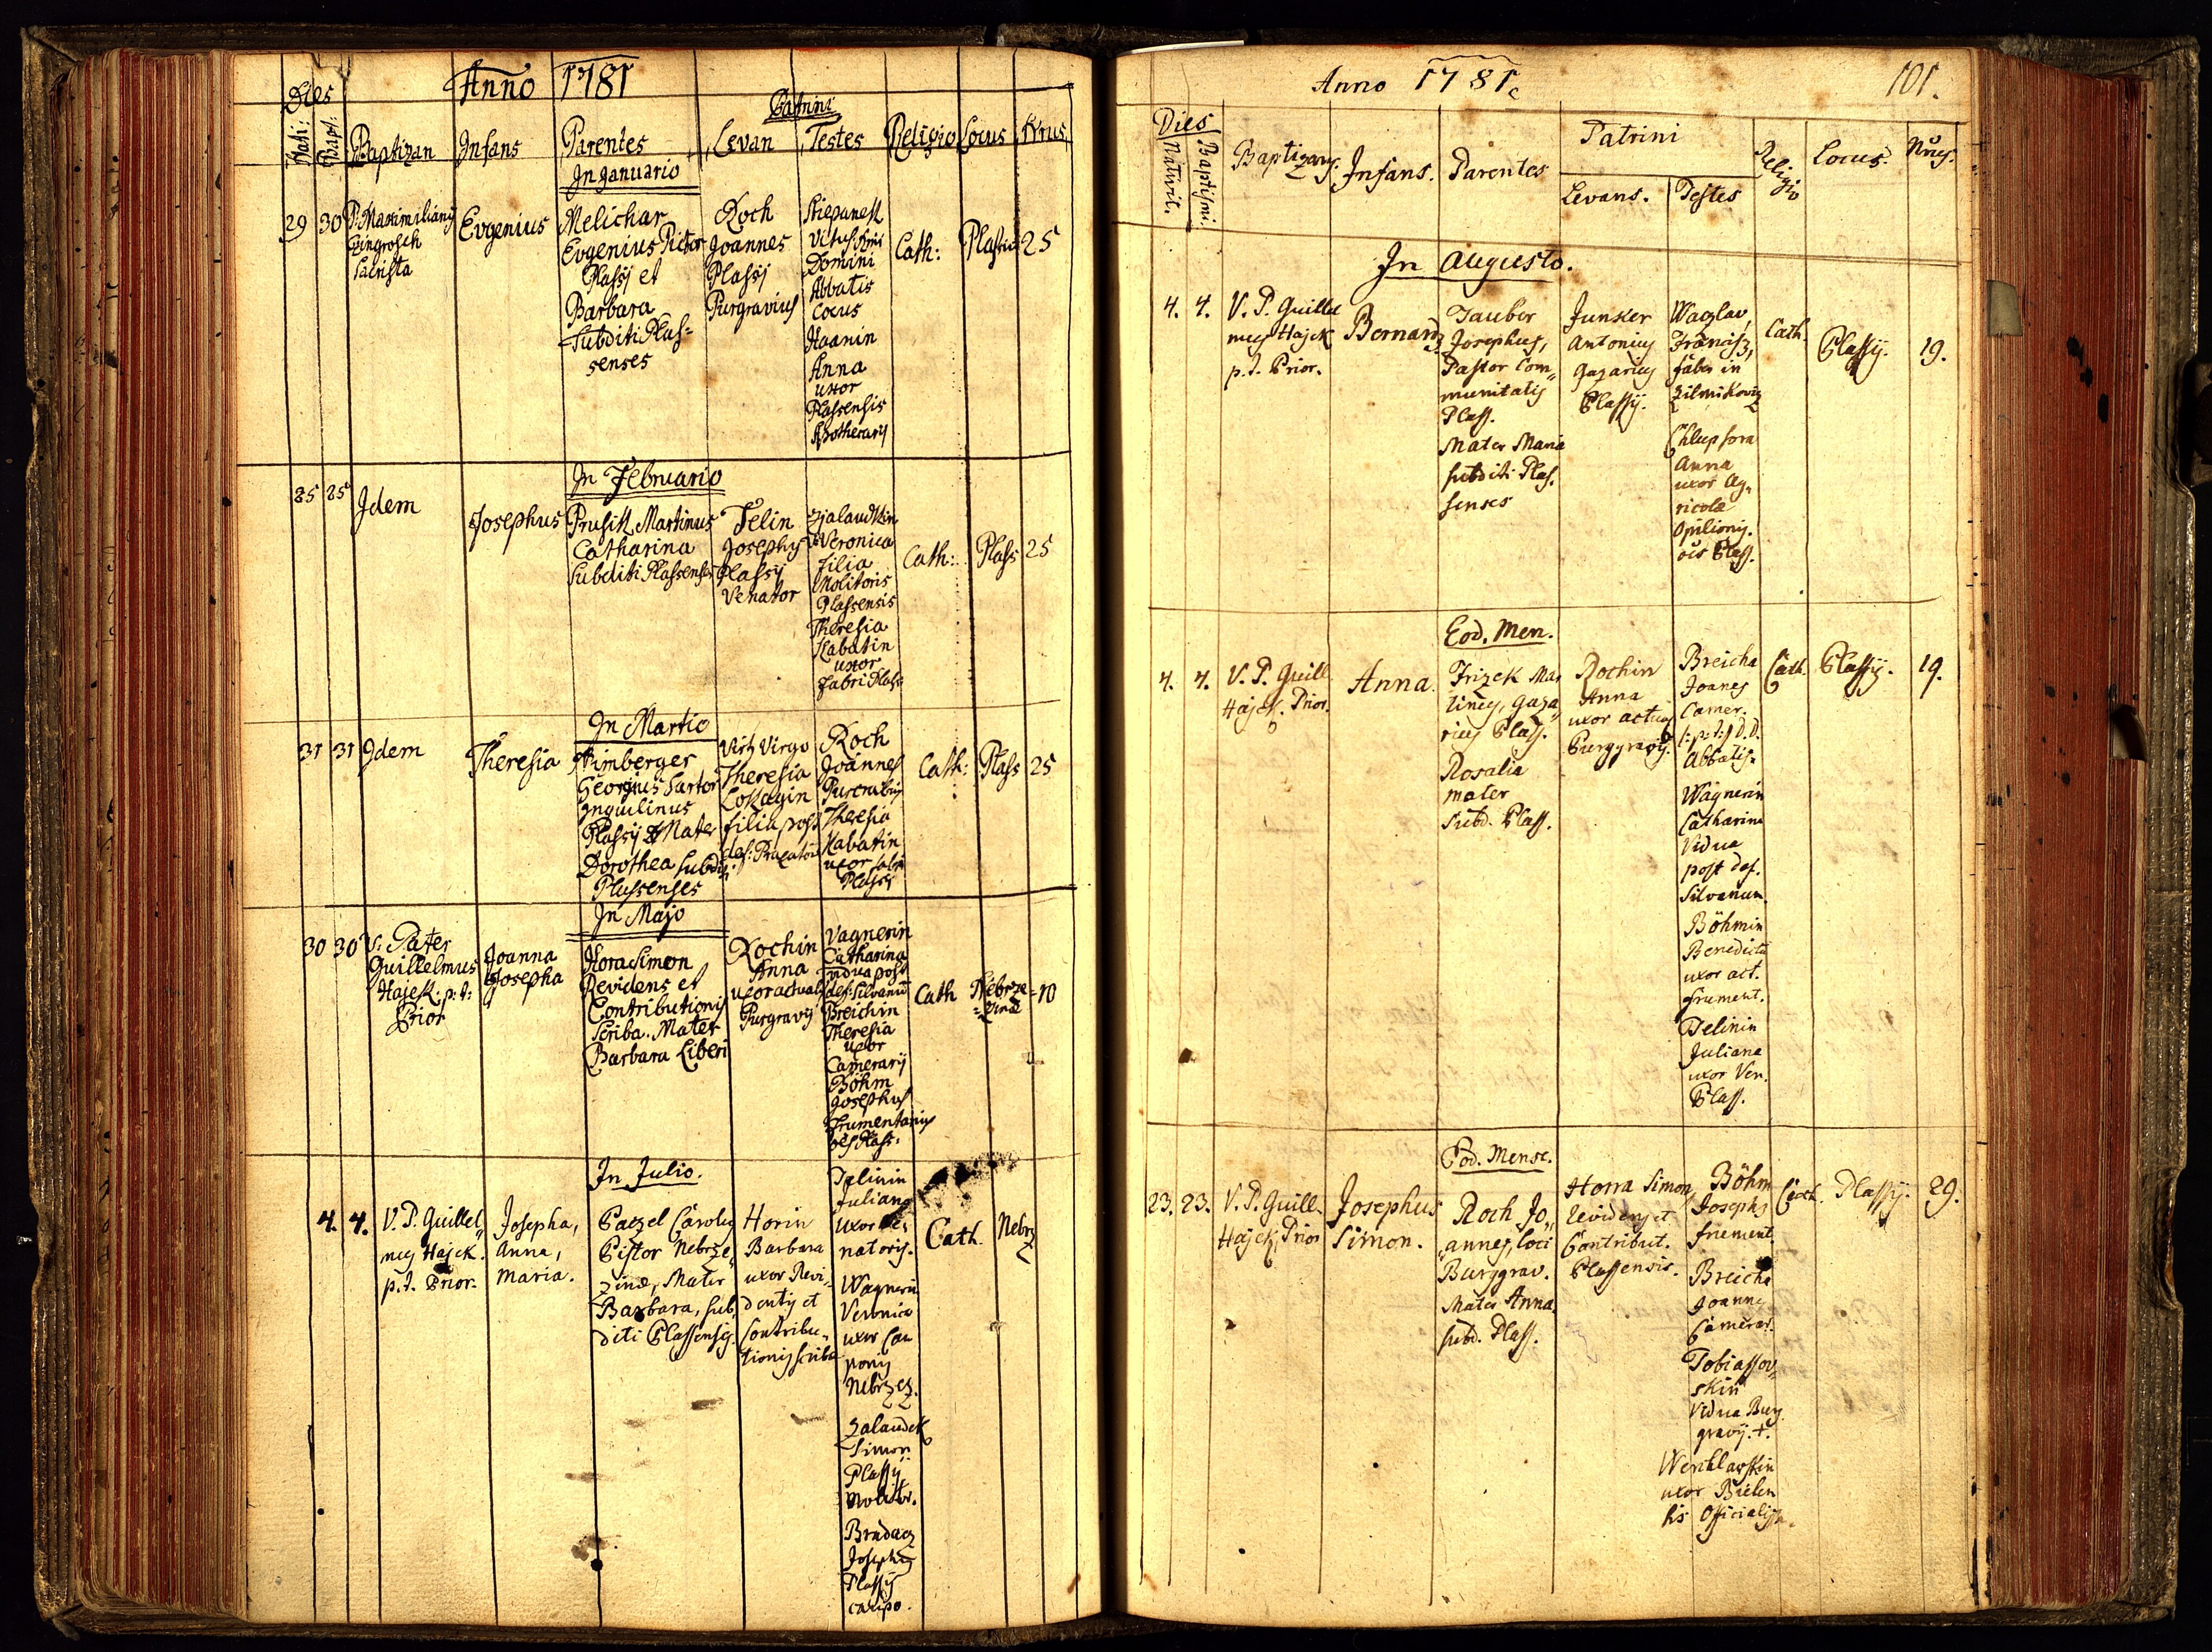 Anno 1781
Dies
Nati:
Bapt:
Baptizan
Infans
Parentes
Patrini
Levan
Testes
Religio
Locus
Nrus
In Januario
29
30
P. Maximilianus
Sacrista
Evgenius
Melichar
Evgenius Pictor
Plassy et
Barbara
Subditi Plas=
senses
Roch
Joannes
Plassy
Purgravius
Stiepanek
Domini
Abbatis
Cocus
Haanin
Anna
uxor
Plassensis
Apothecary
Cath:
25
In Februario
25
25
Idem
Josephus
Prusik Martinus
Catharina
Subditi Plassenses
Telin
Josephus
Plassy
Venator
Veronica
filia
Molitoris
Plassensis
Theresia
Kabatin
uxor
fabri Plass
Cath:
Plass
25
In Martio
31
31
Idem
Theresia
Nimberger
Georgius Sartor
Inquilinus
Plassy & Mater
Dorothea Subditi
Plassenses
Virgo
Theresia
Lokagin
filia post
def:
Roch
Joannes
Theresia
Kabatin
uxor fabri
Plassy
Cath:
Plass
25
In Majo
30
30
V: Pater
Guillelmus
Hajek. p: t:
Prior
Joanna
Josepha
Hora Simon
Revidens et
Contributionis
Scriba. Mater
Barbara Liberi
Rochin
Anna
uxor actualis
Purgravy
Vagnerin
Catharina
vidua post
def: Silvanum
Breichin
Theresia
uxor
Camerary
Böhm
Josephus
Frumentarius
oes Plass.
Cath
Nebrze
=zinae
10
In Julio.
4.
4.
V. P. Guillel„
mus Hajek.
p. t. Prior.
Josepha,
Anna,
Maria.
Paczel Carolus
Pistor Nebrze„
zinae, Mater
Barbara, sub„
diti Plassenses.
Horin
Barbara
uxor Revi„
dentis et
Contribu„
tionis scribae
Telinin
Juliana
uxor Ve„
natoris.
Wagnerin
Veronica
uxor Cau„
ponis
Nebrzez.
Zalaudek
Simon
Plassy
molitor.
Brudacz
Josephus
Plassy
caupo.
Cath.
Nebrz
Anno 1781.
101.
Dies
Nativit.
Baptismi.
Baptizans.
Infans.
Parentes
Patrini
Levans.
Testes
Religio
Locus.
Nrus.
In Augusto.
4.
4.
V. P. Guillel
mus Hajek
p. t. Prior.
Bernard
Tauber
Josephus,
Pastor Com„
munitatis
Plass.
Mater Maria
subditi Plas„
senses
Junker
Antonius
Gazarius
Plassy.
Waczlav
faber in
Anna
uxor Ag„
ricolae
Opilionis.
oes Plass.
Cath.
Plassy.
19.
Eod. Men.
4.
4.
V. P. Guill.
Hajek. Prior.
Anna.
Trizek Mar„
tinus, Gaza„
rius Plass.
Rosalia
mater
subd. Plass.
Rochin
Anna
uxor actualis
Purggravy.
Breicha
Joanes
Camer.
D. D.
Abbatis.
Wagnerin
Catharina
Vidua
post def.
Silvanum.
Böhmin
Benedicta
uxor act.
frument.
Telinin
Juliana
uxor Ven.
Plass.
Cath.
Plassy.
19.
Eod. Mense.
23.
23.
V. P. Guill.
Hajek, Prior
Josephus
Simon.
Roch Jo„
annes, loci
Burggrav.
Mater Anna
subd. Plass.
Horra Simon
Revidens et
Contribut.
Plassensis.
Böhm
Josephs
frument.
Breicha
Joannes
Camerar.
Tobiassov„
skin
Vidua Burg
gravy. +.
Wenklarskin
uxor
Officialis.
Cath.
Plassy.
29.